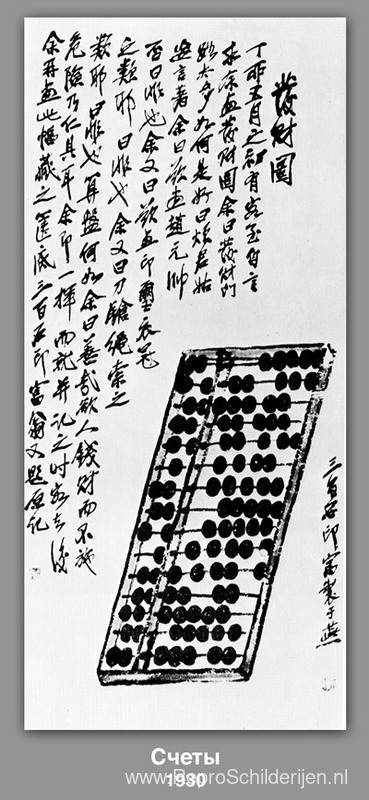 發財圖
丁卯五月之初有客至自言
求余畫發財圖余曰發財門
路太多如何是好曰煩君姑
妄言著余曰欲畫趙元帥
否曰非也余又曰欲畫印璽衣冠
之類耶曰非也余又曰刀鎗繩索之
類耶曰非也算盤何如余曰善哉欲人錢財而不施
危險乃仁具耳余即一揮而就并記之時客去後
余再畫此幅藏之篋底三百石印富翁又題原記
三百石印富翁製于燕
Счеты
1930
www.ReproSchilderijen.nl